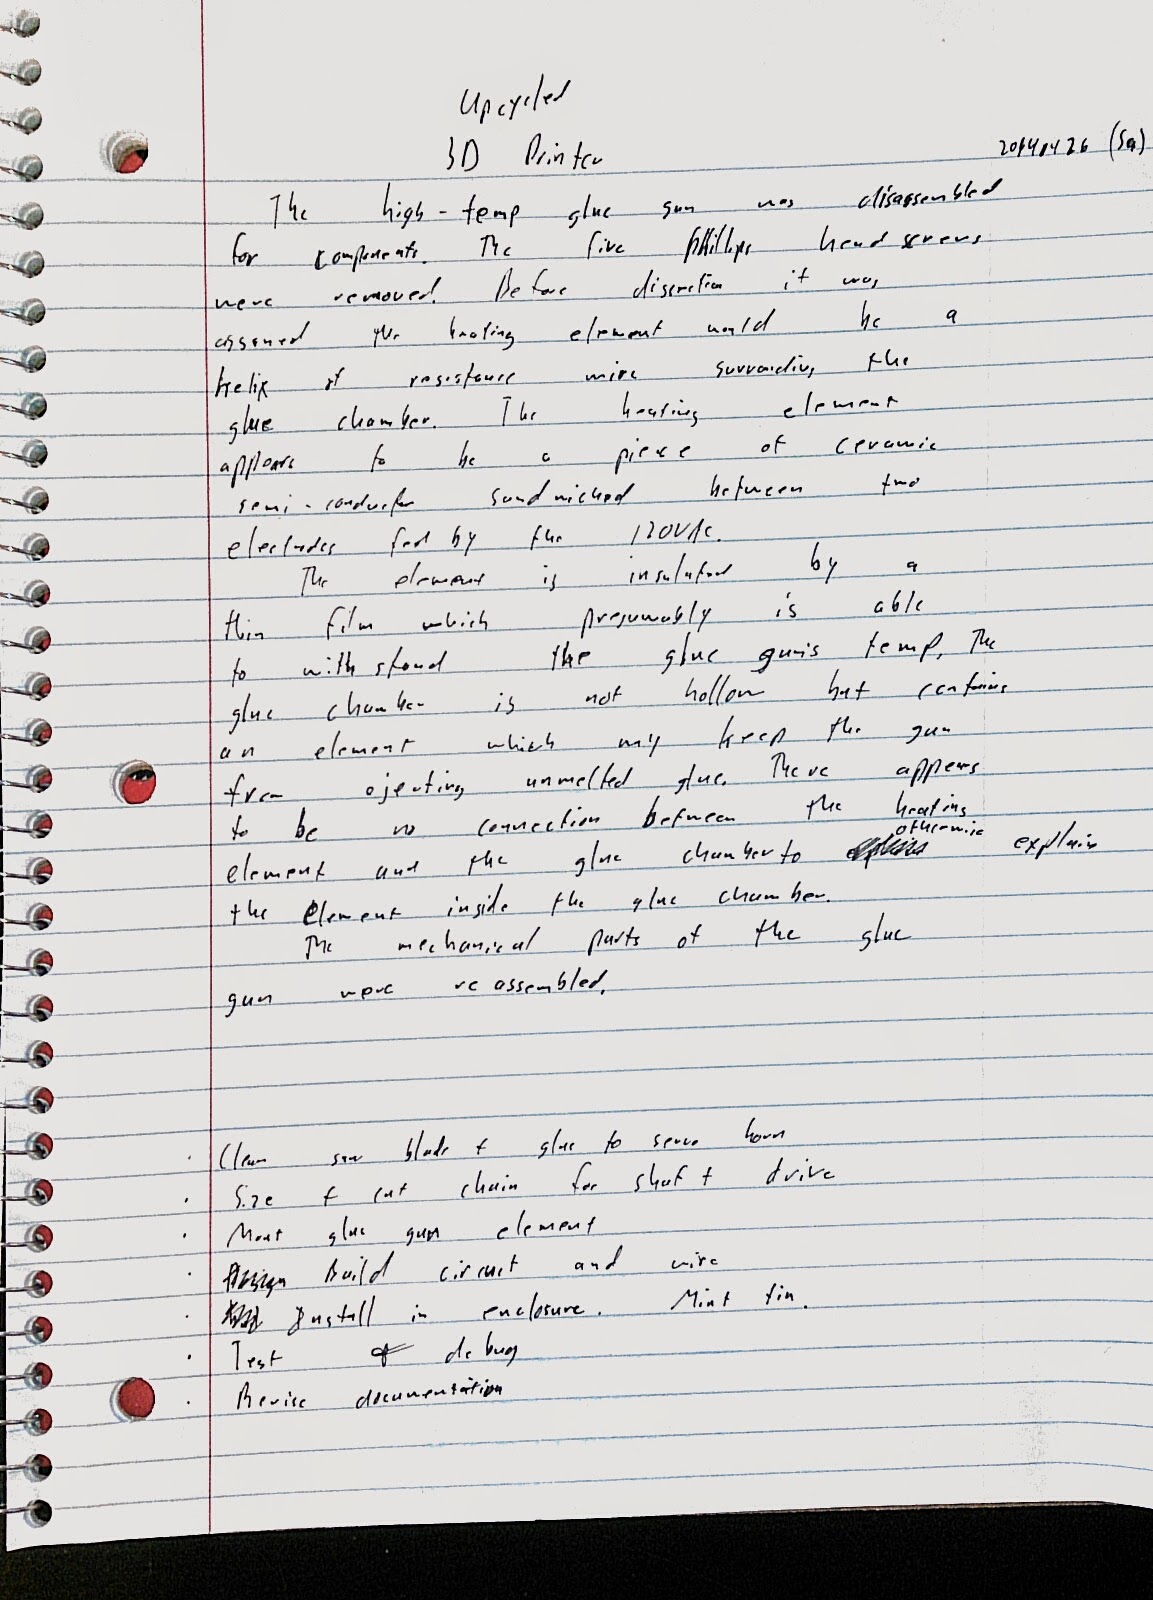 Upcycled
3D Printer
20140426 (Sa)
The high-temp glue gun was disassembled
for components. The five Phillips head screws
were removed. Before discretion it was
assumed the heating element would be a
helix of resistance wire surrounding the
glue chamber. The heating element
appears to be a piece of ceramic
semi-conductor sandwiched between two
electrodes fed by the 120VAC.
The element is insulated by a
thin film which presumably is able
to withstand the glue gun's temp. The
glue chamber is not hollow but contains
an element which may keep the gun
from ejecting unmelted glue. There appears
to be no connection between the heating
element and the glue chamber to otherwise explain
the element inside the glue chamber.
The mechanical parts of the glue
gun were reassembled.
· Clean saw blade + glue to servo horn
· Size + cut chain for shaft drive
· Mount glue gun element
· Design Build circuit and wire
· Install in enclosure. Mint tin.
· Test + debug
· Revise documentation